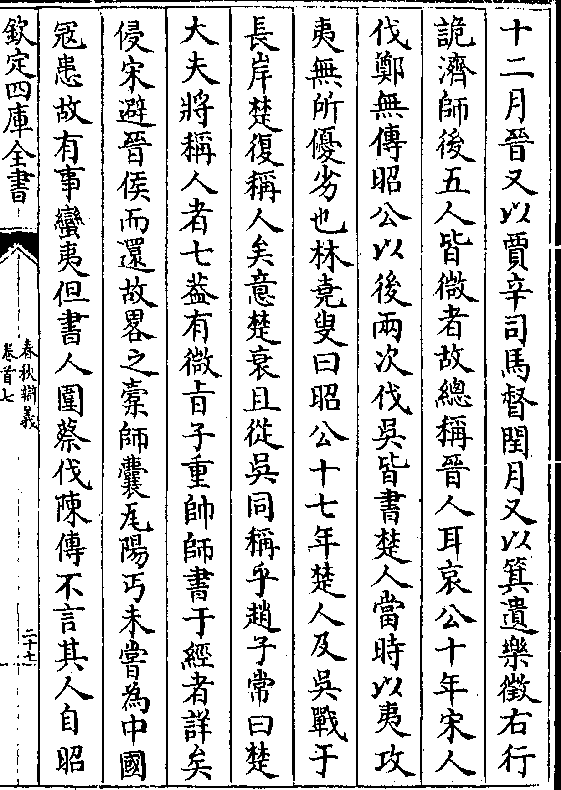 十二月晉又以賈辛司馬督閏月又以箕遺樂徵右行
詭濟師後五人皆微者故總稱晉人耳哀公十年宋人
伐鄭無傳昭公以後兩次伐吳皆書楚人當時以夷攻
夷無所優劣也林堯叟曰昭公十七年楚人及吳戰于
長岸楚復稱人矣意楚衰且從吳同稱乎趙子常曰楚
大夫將稱人者七葢有微㫖子重帥師書于經者詳矣
侵宋避晉侯而還故畧之橐師囊瓦陽丐未嘗為中國
冦患故有事蠻夷但書人圍蔡伐陳傳不言其人自昭
欽定四庫全書
春秋辯義
卷首七
二十七